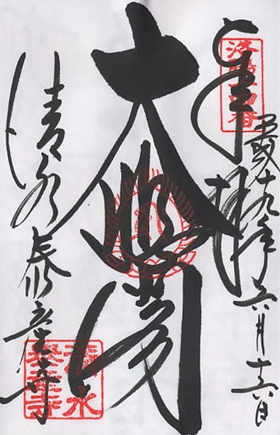 洛陽十四番
奉拝
平成十九年六月十六日
大悲閣
清水 泰産寺
清水
泰産寺